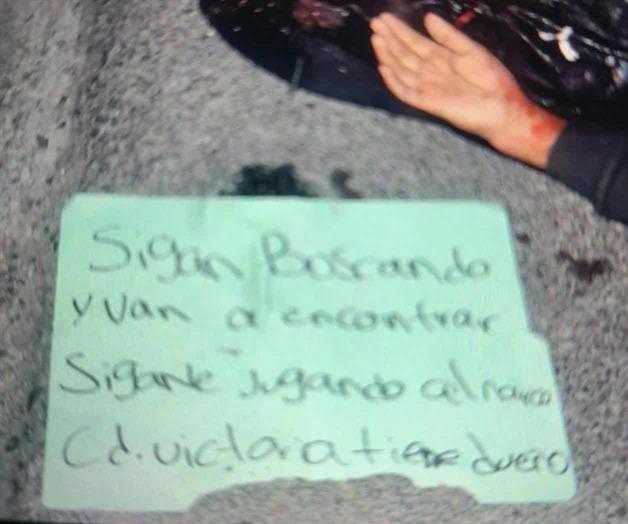 Sigan Boscando
y van a encontrar
Siganle Jugando al narco
Cd. victoria tiene dueño